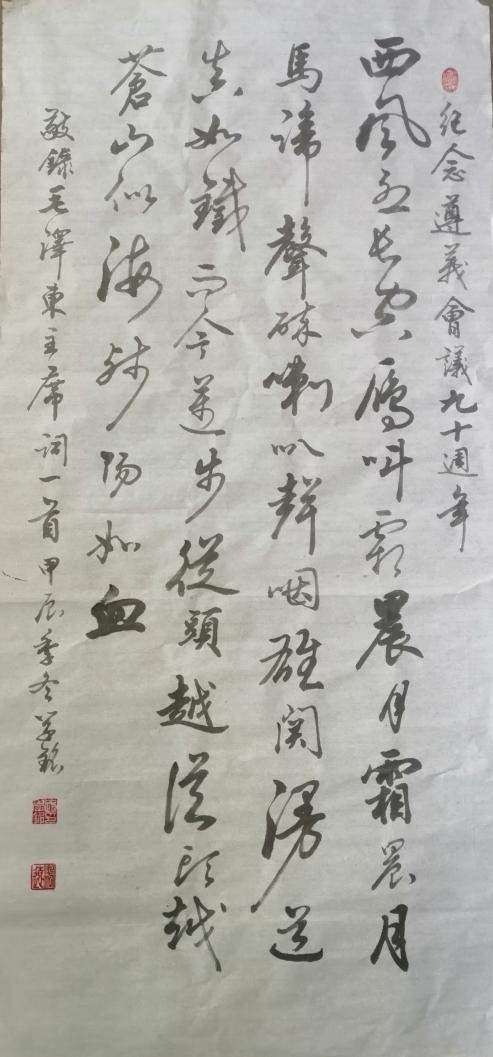 纪念遵義會議九十週年
西風烈长空雁叫霜晨月霜晨月
馬蹄聲碎喇叭聲咽雄関漫道
真如鐵而今邁步從頭越從頭越
蒼山似海残陽如血
敬錄毛澤東主席詞一首甲辰季冬